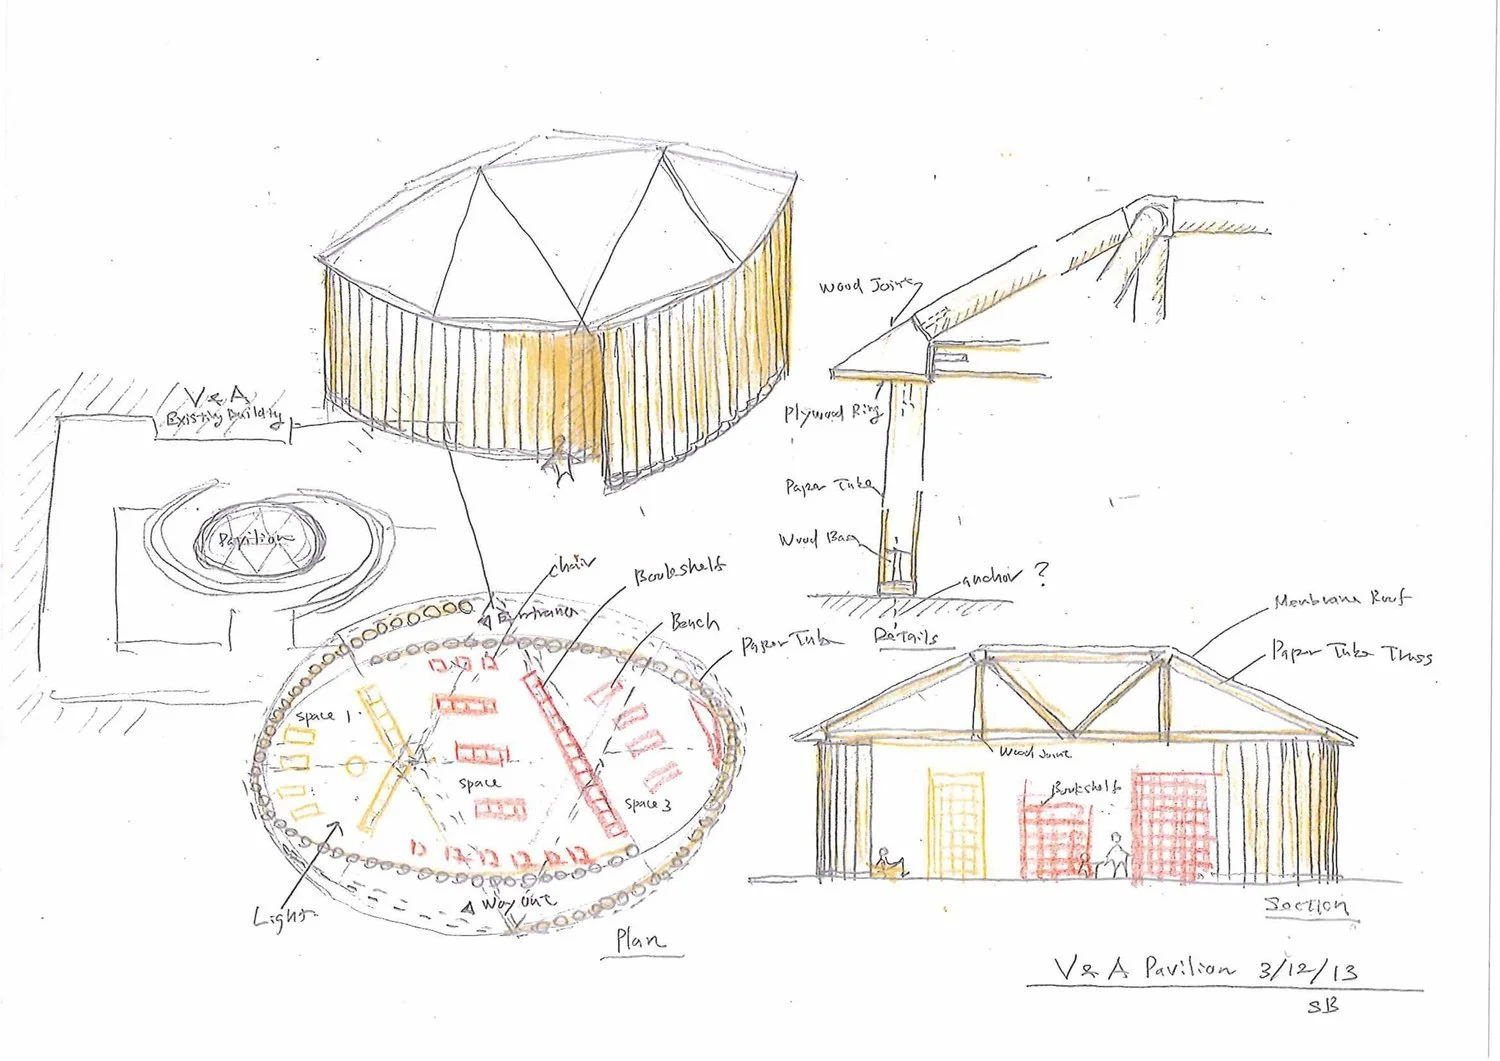 V & A
Existing Building
Pavilion
Wood Joint
Plywood Ring
Paper Tube
Wood Base
anchor ?
Details
chair
Bookshelf
Bench
Paper Tube
Entrance
space 1
space
space 3
Light
Way out
Plan
Membrane Roof
Paper Tube Truss
Wood Joint
Bookshelf
Section
V & A Pavilion 3/12/13
SB